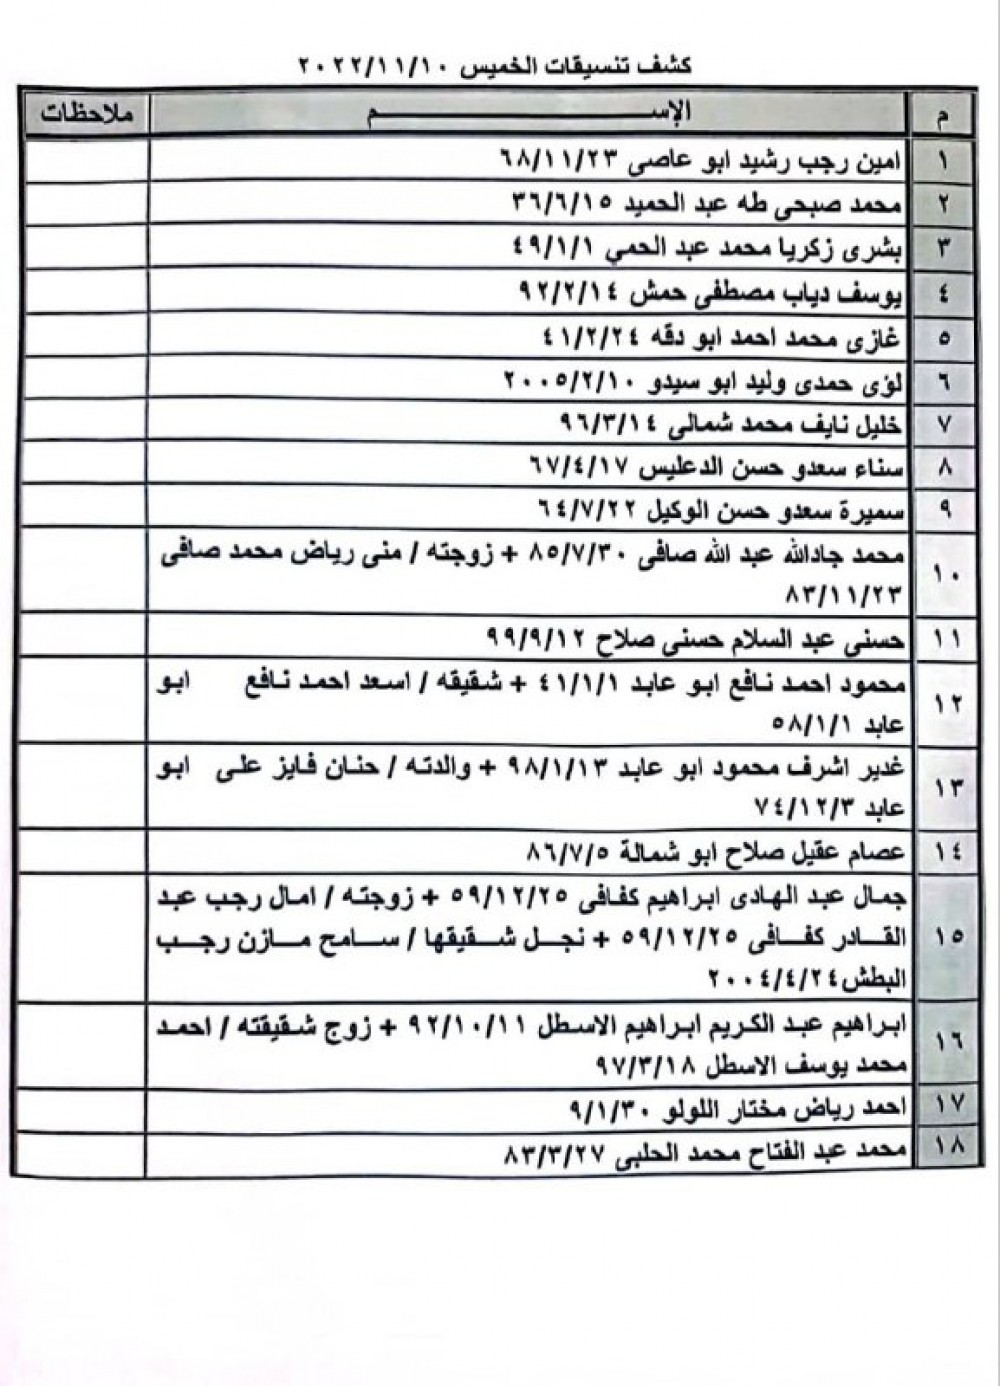 كشف تنسيقات الخميس ٢٠٢٢/١١/١٠
م الإســـــم ملاحظات
١ امين رجب رشيد ابو عاصى ٦٨/١١/٢٣
٢ محمد صبحى طه عبد الحميد ٣٦/٦/١٥
٣ بشرى زكريا محمد عبد الحمي ٤٩/١/١
٤ يوسف دياب مصطفى حمش ٩٢/٢/١٤
٥ غازى محمد احمد ابو دقه ٤١/٢/٢٤
٦ لؤى حمدى وليد ابو سيدو ٢٠٠٥/٢/١٠
٧ خليل نايف محمد شمالى ٩٦/٣/١٤
٨ سناء سعدو حسن الدعليس ٦٧/٤/١٧
٩ سميرة سعدو حسن الوكيل ٦٤/٧/٢٢
١٠ محمد جادالله عبد الله صافى ٨٥/٧/٣٠ + زوجته / منى رياض محمد صافى
٨٣/١١/٢٣
١١ حسنى عبد السلام حسنى صلاح ٩٩/٩/١٢
١٢ محمود احمد نافع ابو عابد ٤١/١/١ + شقيقه / اسعد احمد نافع ابو
عابد ٥٨/١/١
١٣ غدير اشرف محمود ابو عابد ٩٨/١/١٣ + والدته / حنان فايز على ابو
عابد ٧٤/١٢/٣
١٤ عصام عقيل صلاح ابو شمالة ٨٦/٧/٥
١٥ جمال عبد الهادى ابراهيم كفافى ٥٩/١٢/٢٥ + زوجته / امال رجب عبد
القادر كفافى ٥٩/١٢/٢٥ + نجل شقيقها / سامح مازن رجب
البطش ٢٠٠٤/٤/٢٤
١٦ ابراهيم عبد الكريم ابراهيم الاسطل ٩٢/١٠/١١ + زوج شقيقته / احمد
محمد يوسف الاسطل ٩٧/٣/١٨
١٧ احمد رياض مختار اللولو ٩/١/٣٠
١٨ محمد عبد الفتاح محمد الحلبى ٨٣/٣/٢٧